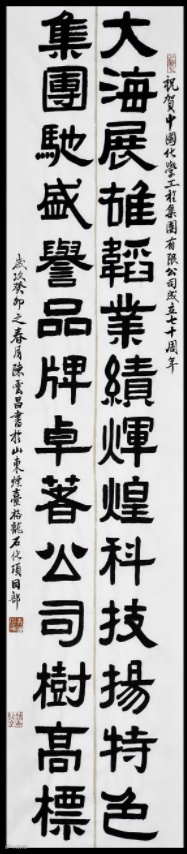 祝賀中國化學工程集團有限公司成立七十周年
大海展雄韜業績輝煌科技揚特色
集團馳盛譽品牌卓著公司樹高標
歲次癸卯之春月陳雲昌書於山東煙臺裕龍石化項目部